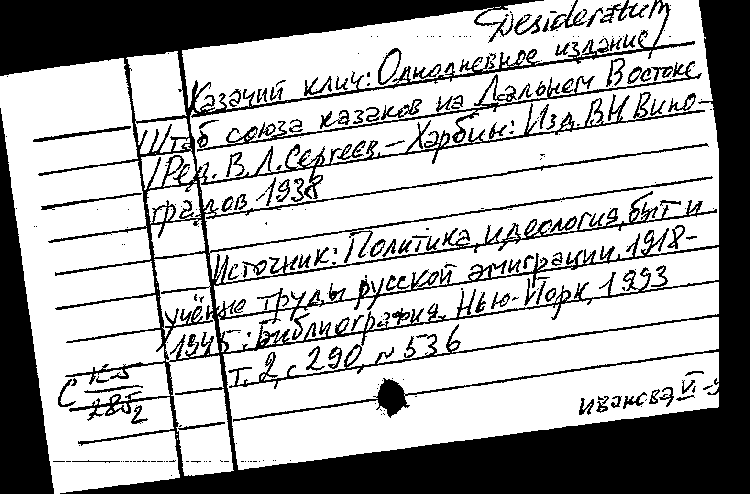 Desideratum
Казачий клич: Однодневное издание /
Штаб союза казаков на Дальнем Востоке,
/Ред. В. Л. Сергеев. – Харбин: Изд. ВН Вино-
градов, 1938
Источник: Политика, идеология, быт и
учёные труды русской эмиграции, 1918-
1945: Библиография. Нью-Йорк, 1993
Т. 2, с 290, № 536
С К-5
285 2
Иванова, VI